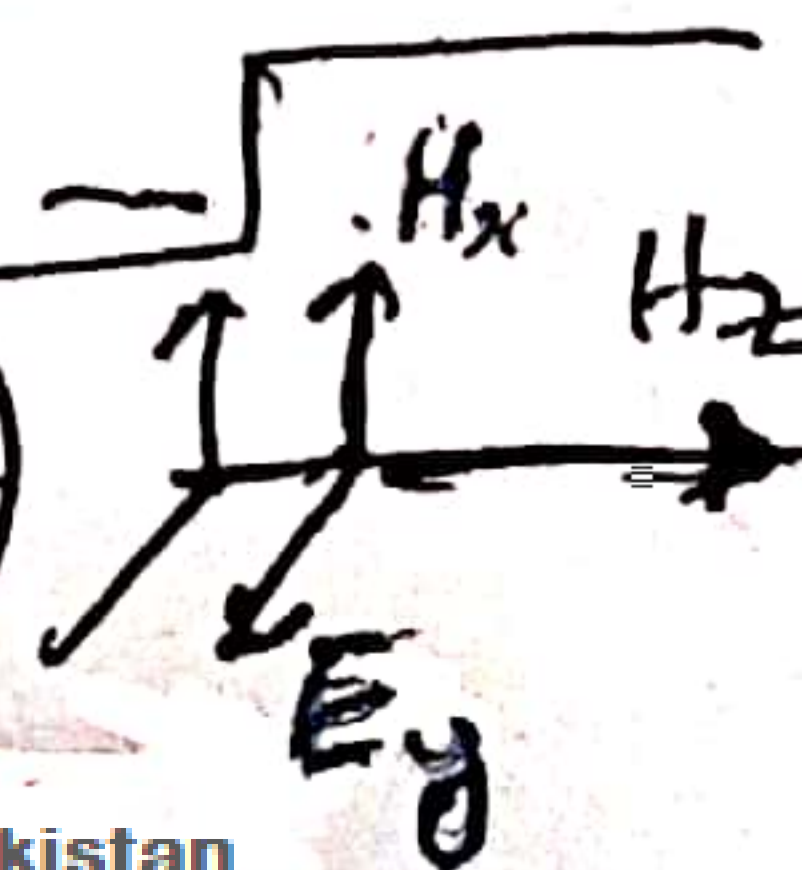 Hx
Hz
Ey
kistan